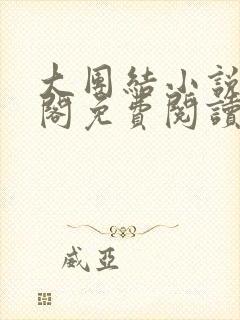 大團結小說
閣免費閱讀
威亞